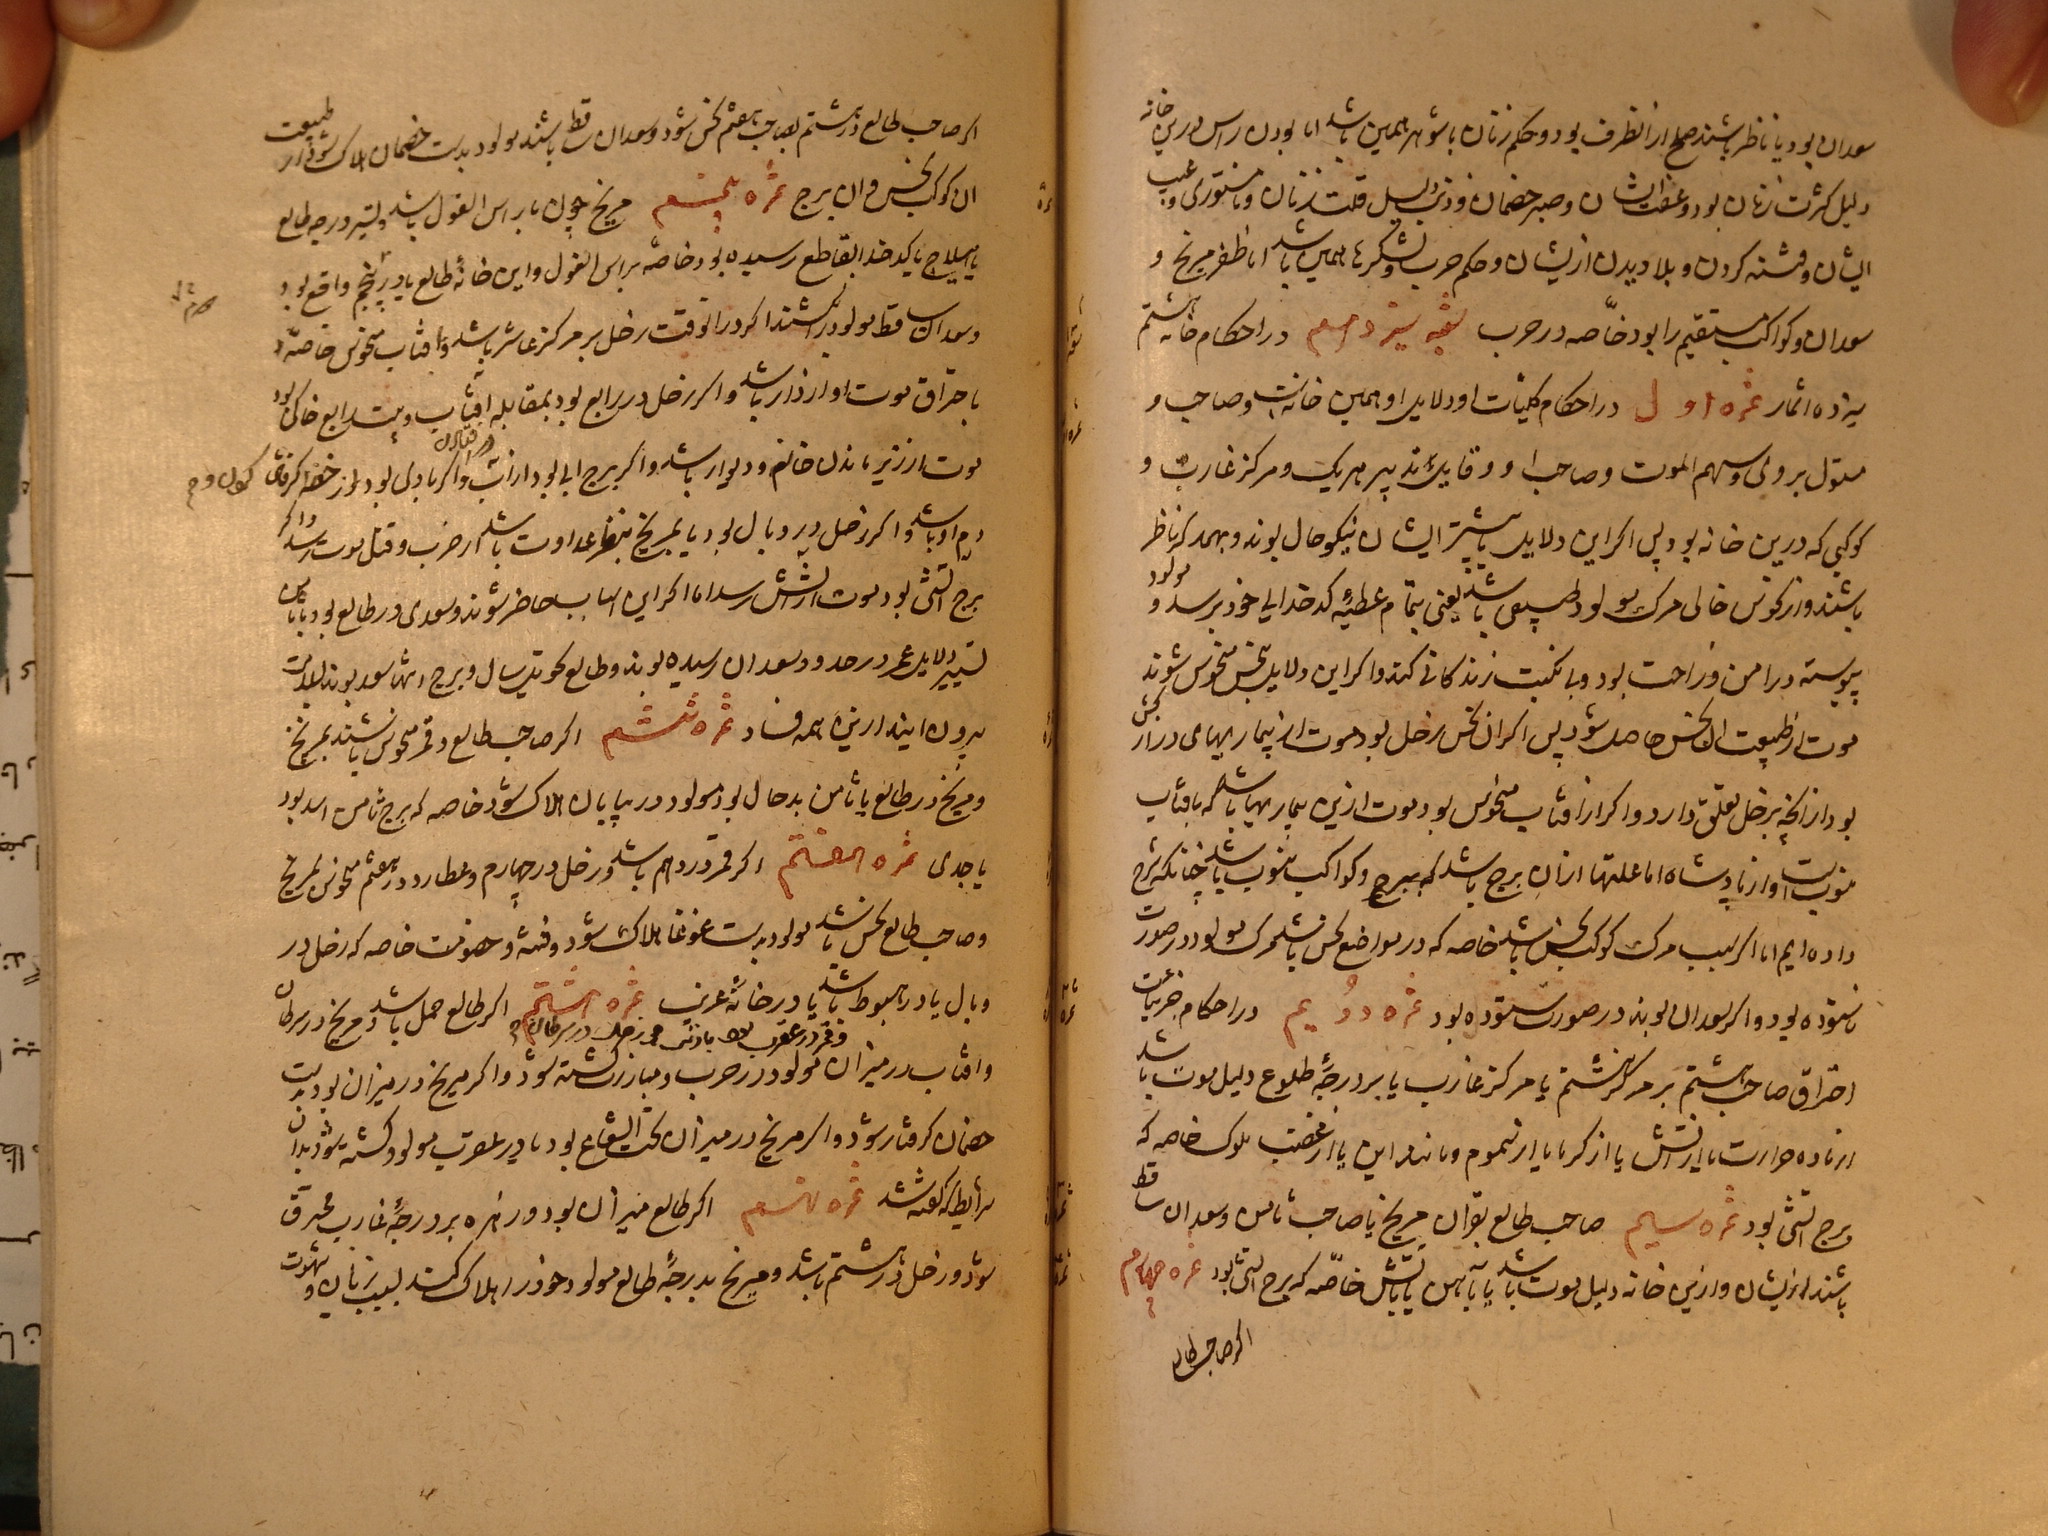 سعدان بود یا ناظر باشند صلح از انطرف بود و حکم زنان با شوهر همین باشد اما بودن راس درین خانه
دلیل کثرت زنان بود و عفت ایشان و صبر خصمان و ذنب دلیل قلت زنان و نامستوری و عیب
ایشان و فتنه کردن و بلا دیدن ازیشان و حکم حرب و لشکرها همین باشد اما ظفر مریخ و
سعدان و کواکب مستقیم را بود خاصّه در حرب شعبه سیزدهم در احکام خانه هشتم
سیزده اثمار ثمره اول در احکام کلیات او دلایل او همین خانه است و صاحب و
مستولی بر وی و سهم الموت و صاحب او و تدبیر هر یک و مرکز غارب و
کوکبی که درین خانه بود پس اگر این دلایل یا بیشتر ایشان نیکو حال بوند و بهمدگر ناظر
باشند و از نحوس خالی مرک مولود طبیعی باشد یعنی بتمام عطیّه کدخدایی خود برسد و مولود
پیوسته در امن و راحت بود و بی نکبت زندگانی کند و اگر این دلایل بنحس منحوس شوند
موت از طبیعت آن نحس حاصل شود پس اگر آن نحس زحل بود موت از بیماریهای دراز کش
بود از انچه بزحل تعلق دارد و اگر از افتاب منحوس بود موت ازین بیماریها باشد که بافتاب
منوب است او از پادشاه اما علتها از آن برج باشد که ببرج و کواکب منسوب باشد چنانکه شرح
داده ایم اما اگر سبب مرک کوکب نحس باشد خاصه که در مواضع نحس باشد مرک مولود در صورت
ناستوده بود و اگر سعدان بوند در صورت ستوده بود ثمره دویم در احکام جزئیات
احتراق صاحب هشتم بر مرکز هشتم یا مرکز غارب یا بر درجهٔ طلوع دلیل موت باشد
از ماده حرارت یا از آتش یا از کرما یا از سموم و مانند این یا از غضب ملوک خاصه که
برج آتشی بود ثمره سیم صاحب طالع بقران مریخ یا صاحب ثامن و سعدان ساقط
باشند ازیشان و ازین خانه دلیل موت باشد یا بآهن یا بآتش خاصّه که برج آتشی بود ثمره چهارم
اگر صاحب طالع
اگر صاحب طالع در هشتم بصاحب هفتم نحس شود و سعدان ساقط باشند مولود بدست خصمان هلاک شود از طبیعت
ان کوکب نحس و ان برج ثمره پنجم مریخ چون با راس الغول باشد و تسییر درجه طالع
یا هیلاج یا کدخدا بقاطع رسیده بود خاصّه براس الغول و این خانهٔ طالع یا در پنجم واقع بود
و سعدان ساقط مولود را بکشند اگر در انوقت زحل بر مرکز عاشر باشد و افتاب منحوس خاصّه
باحتراق موت او از دار باشد و اگر زحل در رابع بود بمقابله افتاب و بیت رابع خاکی بود
موت از زیر ماندن خانه و دیوار باشد و اگر برج ابی بود از آب و اگر بادی بود از خفه کرفتن
دم او باشد و اگر زحل در وبال بود یا بمریخ بنظر عداوت باشد از ضرب و قتل موت رسد و اگر
برج آتشی بود موت از آتش رسد اما اگر این اسباب حاضر شوند و سعدی در طالع بود یا ثامن
تسییر دلایل عمر در حدود سعدان رسیده بوند و طالع تحویل سال و برج انتها سعد بوند بسلامت
بیرون اید ازین همه فساد ثمره ششم اگر صاحب طالع و قمر منحوس باشند بمریخ
و مریخ در طالع یا ثامن بد حال بود مولود در بیابان هلاک شود خاصه که برج ثامن اسد بود
یا جدی ثمره هفتم اگر قمر در دهم باشد و زحل در چهارم و عطارد در هفتم منحوس بمریخ
و صاحب طالع نحس باشد مولود بدست غوغا هلاک شود و فتنه و خصومت خاصه که زحل در
وبال یا در هبوط باشد یا در خانهٔ غربت ثمره هشتم اگر طالع حمل باشد و مریخ در سرطان
و قمر در عقرب بود با ذنب و زحل در سرطان
و افتاب در میزان مولود در حرب و مبارزت کشته شود و اگر مریخ در میزان بود بدست
خصمان کرفتار شود و اگر مریخ در میزان تحت الشعاع بود یا در عقرب مولود کشته شود بدان
شرایط که کفته شد ثمره نهم اگر طالع میزان بود و زهره بر درجهٔ غارب محترق
شود و زحل در هشتم باشد و مریخ بدرجهٔ طالع مولود خود را هلاک کند بسبب زنان و شهوت